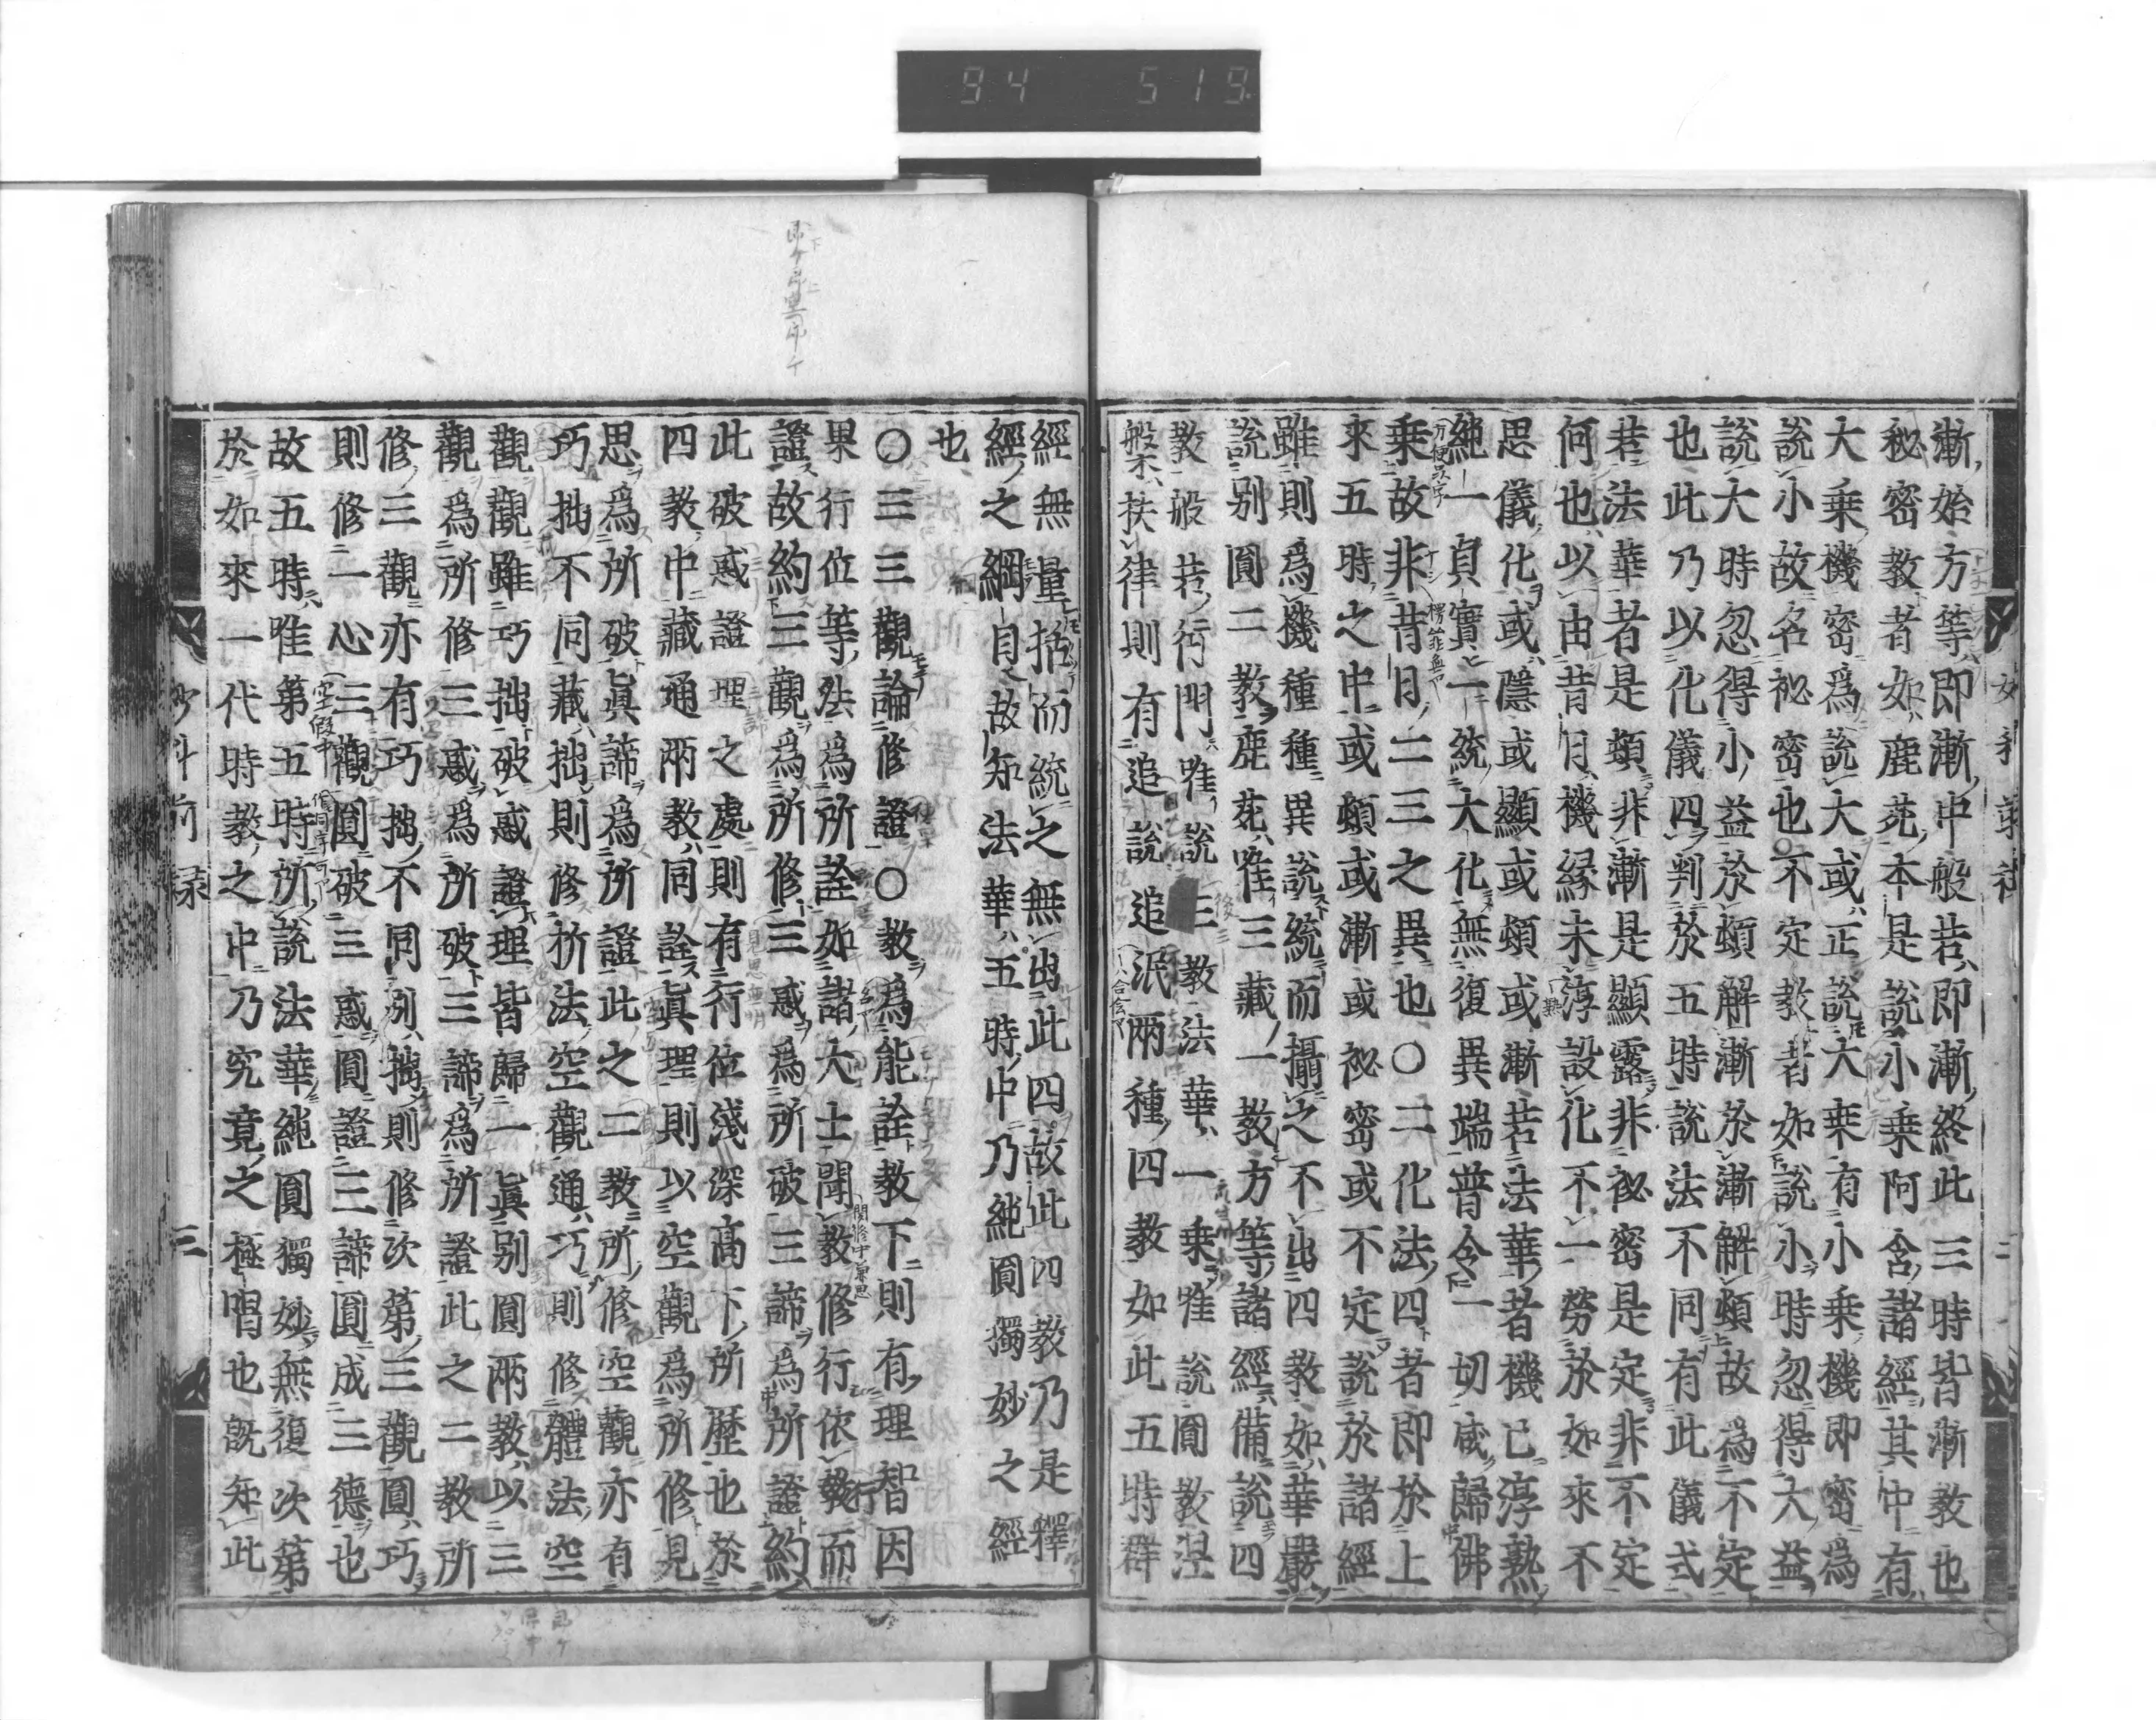 94 519
漸始方等即漸中般若即漸終此三時皆漸教也
秘密教者如鹿苑本是說小乗阿含諸經其中有
大乗機密爲說大或正說大乗有小乗機即密爲
說小故名秘密也不定教者如說小時忽得大益
說大時忽得小益於頓解漸於漸解頓故爲不定
也此乃以化儀四判於五時說法不同有此儀式
若法華者是頓非漸是顯露非秘密是定非不定
何也以由昔日機緣未淳設化不一勞於如來不
思儀化或隱或顯或頓或漸若法華者機已淳熟
純一眞實一統大化無復異端普令一切咸歸佛
乗故非昔日二三之異也○二化法四者即於上
來五時之中或頓或漸或祕密或不定說於諸經
雖則爲機種種異說統而攝之不出四教如華嚴
說別圓二教鹿苑唯三藏一教方等諸經備說四
教般若行門唯說三教法華一乗唯說圓教涅
槃扶律則有追說追泯兩種四教如此五時群
經無量括而統之無出此四故此四教乃是釋
經之綱目故知法華五時中乃純圓獨妙之經
也
○三三觀論修證○教爲能詮教下則有理智因
果行位等法爲所詮如諸大士聞教修行依教而
證故約三觀爲所修三惑爲所破三諦爲所證約
此破惑證理之處則有行位淺深高下所歷也於
四教中藏通兩教同詮眞理則以空觀爲所修見
思爲所破眞諦爲所證此之二教所修空觀亦有
巧拙不同藏拙則修析法空觀通巧則修體法空
觀觀雖巧拙破惑證理皆歸一眞別圓兩教以三
觀爲所修三惑爲所破三諦爲所證此之二教所
修三觀亦有巧拙不同別拙則修次第三觀圓巧
則修一心三觀圓破三惑圓證三諦圓成三德也
故五時唯第五時所說法華純圓獨妙無復次第
於如來一代時教之中乃究竟之極唱也既知此
三